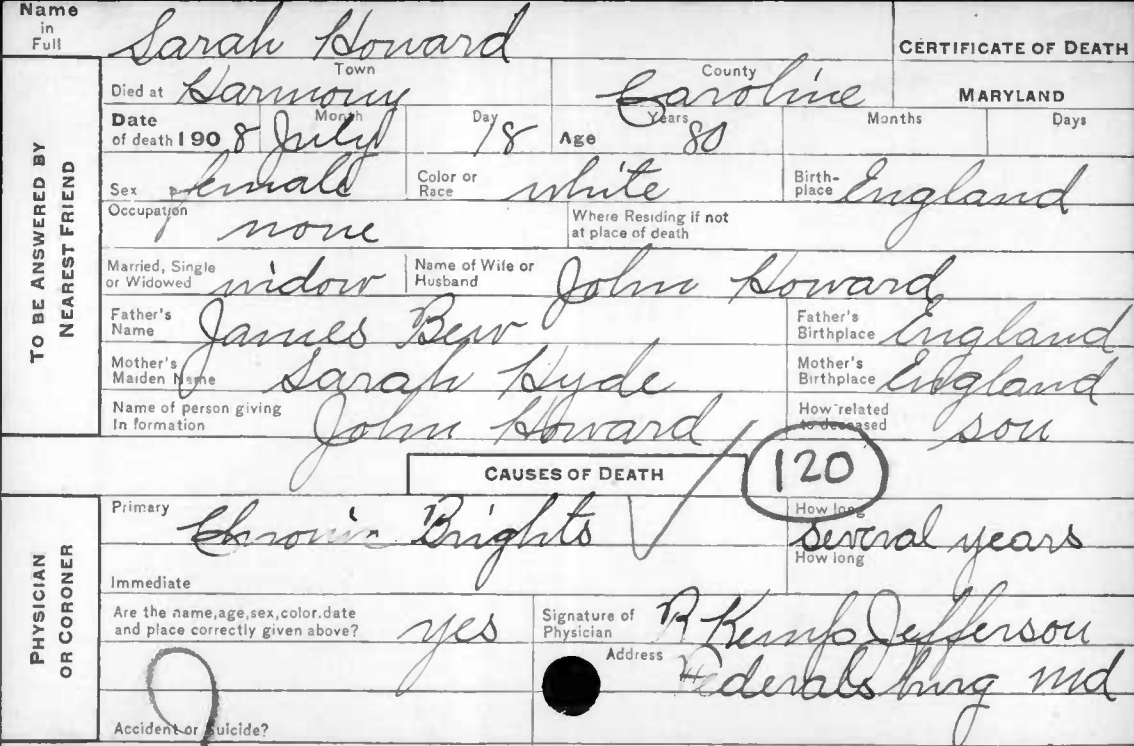 Name in Full Sarah Howard
CERTIFICATE OF DEATH
TO BE ANSWERED BY NEAREST FRIEND
Died at Harmony Town Caroline County MARYLAND
Date of death 1908 Month July Day 18 Age Years 80 Months Days
Sex female Color or Race white Birth-place England
Occupation none Where Residing if not at place of death
Married, Single or Widowed widow Name of Wife or Husband John Howard
Father's Name James Bew Father's Birthplace England
Mother's Maiden Name Sarah Hyde Mother's Birthplace England
Name of person giving In formation John Howard How related to deceased son
CAUSES OF DEATH 120
PHYSICIAN OR CORONER
Primary Chronic Brights How long several years
Immediate How long
Are the name,age,sex,color.date and place correctly given above? yes Signature of Physician R Kemp Jefferson
Address Federalsburg Md
Accident or Suicide?